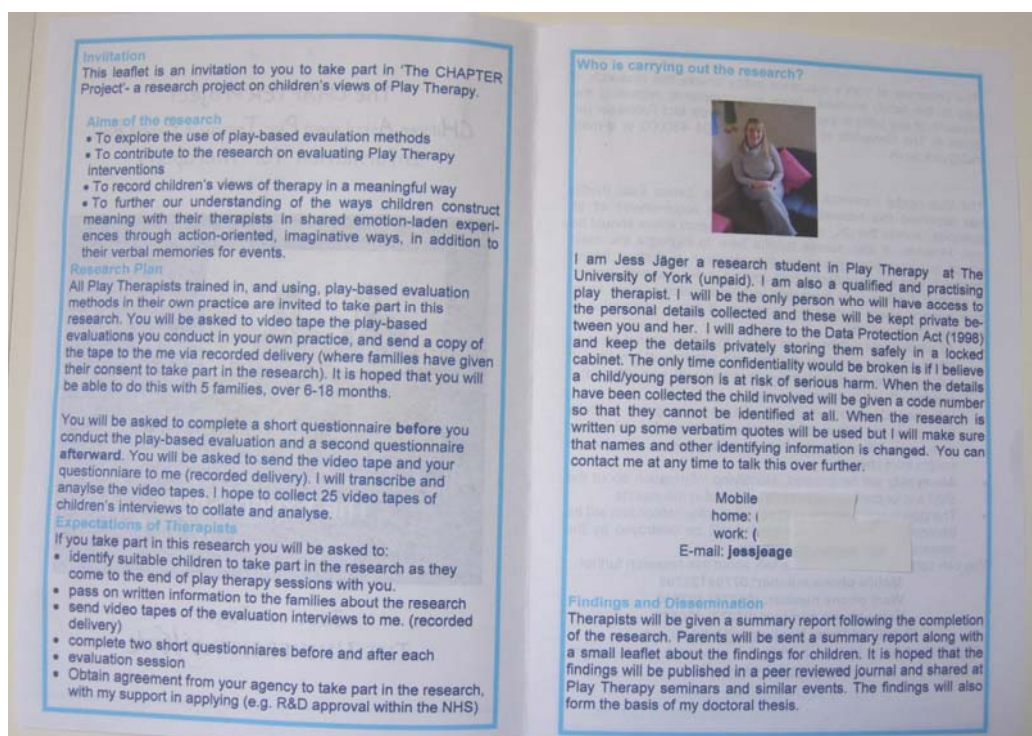 Inviitation
This leaflet is an invitation to you to take part in 'The CHAPTER
Project'- a research project on children's views of Play Therapy.
Aims of the research
• To explore the use of play-based evaulation methods
• To contribute to the research on evaluating Play Therapy
interventions
• To record children's views of therapy in a meaningful way
• To further our understanding of the ways children construct
meaning with their therapists in shared emotion-laden experi-
ences through action-oriented, imaginative ways, in addition to
their verbal memories for events.
Research Plan
All Play Therapists trained in, and using, play-based evaluation
methods in their own practice are invited to take part in this
research. You will be asked to video tape the play-based
evaluations you conduct in your own practice, and send a copy of
the tape to the me via recorded delivery (where families have given
their consent to take part in the research). It is hoped that you will
be able to do this with 5 families, over 6-18 months.
You will be asked to complete a short questionnaire before you
conduct the play-based evaluation and a second questionnaire
afterward. You will be asked to send the video tape and your
questionniare to me (recorded delivery). I will transcribe and
anaylse the video tapes. I hope to collect 25 video tapes of
children's interviews to collate and analyse.
Expectations of Therapists
If you take part in this research you will be asked to:
• identify suitable children to take part in the research as they
come to the end of play therapy sessions with you.
• pass on written information to the families about the research
• send video tapes of the evaluation interviews to me. (recorded
delivery)
• complete two short questionniares before and after each
• evaluation session
• Obtain agreement from your agency to take part in the research,
with my support in applying (e.g. R&D approval within the NHS)
Who is carrying out the research?
I am Jess Jäger a research student in Play Therapy at The
University of York (unpaid). I am also a qualified and practising
play therapist. I will be the only person who will have access to
the personal details collected and these will be kept private be-
tween you and her. I will adhere to the Data Protection Act (1998)
and keep the details privately storing them safely in a locked
cabinet. The only time confidentiality would be broken is if I believe
a child/young person is at risk of serious harm. When the details
have been collected the child involved will be given a code number
so that they cannot be identified at all. When the research is
written up some verbatim quotes will be used but I will make sure
that names and other identifying information is changed. You can
contact me at any time to talk this over further.
Mobile
home: (
work: (
E-mail: jessjeage
Findings and Dissemination
Therapists will be given a summary report following the completion
of the research. Parents will be sent a summary report along with
a small leaflet about the findings for children. It is hoped that the
findings will be published in a peer reviewed journal and shared at
Play Therapy seminars and similar events. The findings will also
form the basis of my doctoral thesis.